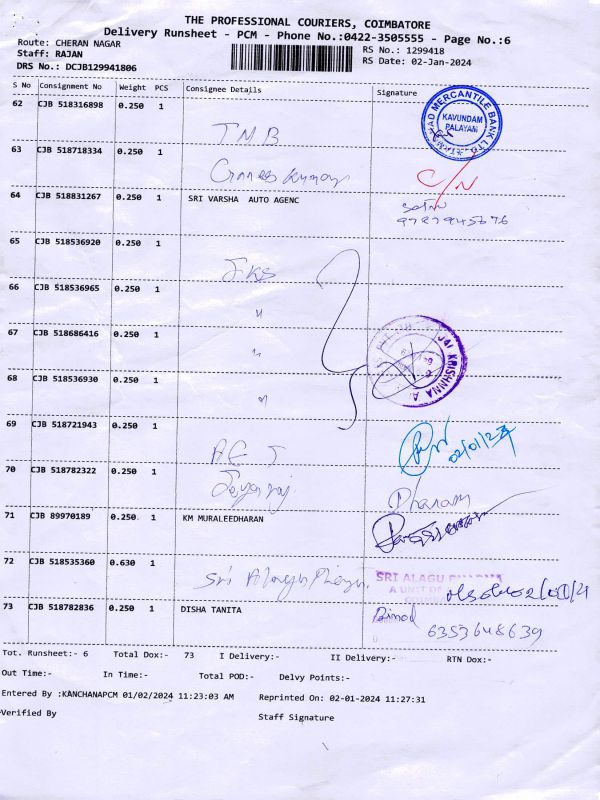 THE PROFESSIONAL COURIERS, COIMBATORE
Delivery Runsheet - PCM - Phone No.:0422-3505555 - Page No.:6
Route: CHERAN NAGAR
RS No.: 1299418
Staff: RAJAN
RS Date: 02-Jan-2024
DRS No.: DCJB129941806
S No Consignment No Weight PCS Consignee Details Signature
62 CJB 518316898 0.250 1
TMB
MERCANTILE BANK LTD
KAVUNDAM
PALAYAM
63 CJB 518718334 0.250 1
C/N
64 CJB 518831267 0.250 1 SRI VARSHA AUTO AGENC
65 CJB 518536920 0.250 1
JKS
66 CJB 518536965 0.250 1
"
67 CJB 518686416 0.250 1
"
JAI KRISHNNA A
68 CJB 518536930 0.250 1
"
69 CJB 518721943 0.250 1
02/01/24
70 CJB 518782322 0.250 1
Dharani
71 CJB 89970189 0.250 1 KM MURALEEDHARAN
72 CJB 518535360 0.630 1
Sri Alagu
SRI ALAGU
A UNIT OF
73 CJB 518782836 0.250 1 DISHA TANITA
Binod
6353648639
Tot. Runsheet:- 6 Total Dox:- 73 I Delivery:- II Delivery:- RTN Dox:-
Out Time:- In Time:- Total POD:- Delvy Points:-
Entered By :KANCHANAPCM 01/02/2024 11:23:03 AM Reprinted On: 02-01-2024 11:27:31
Verified By Staff Signature